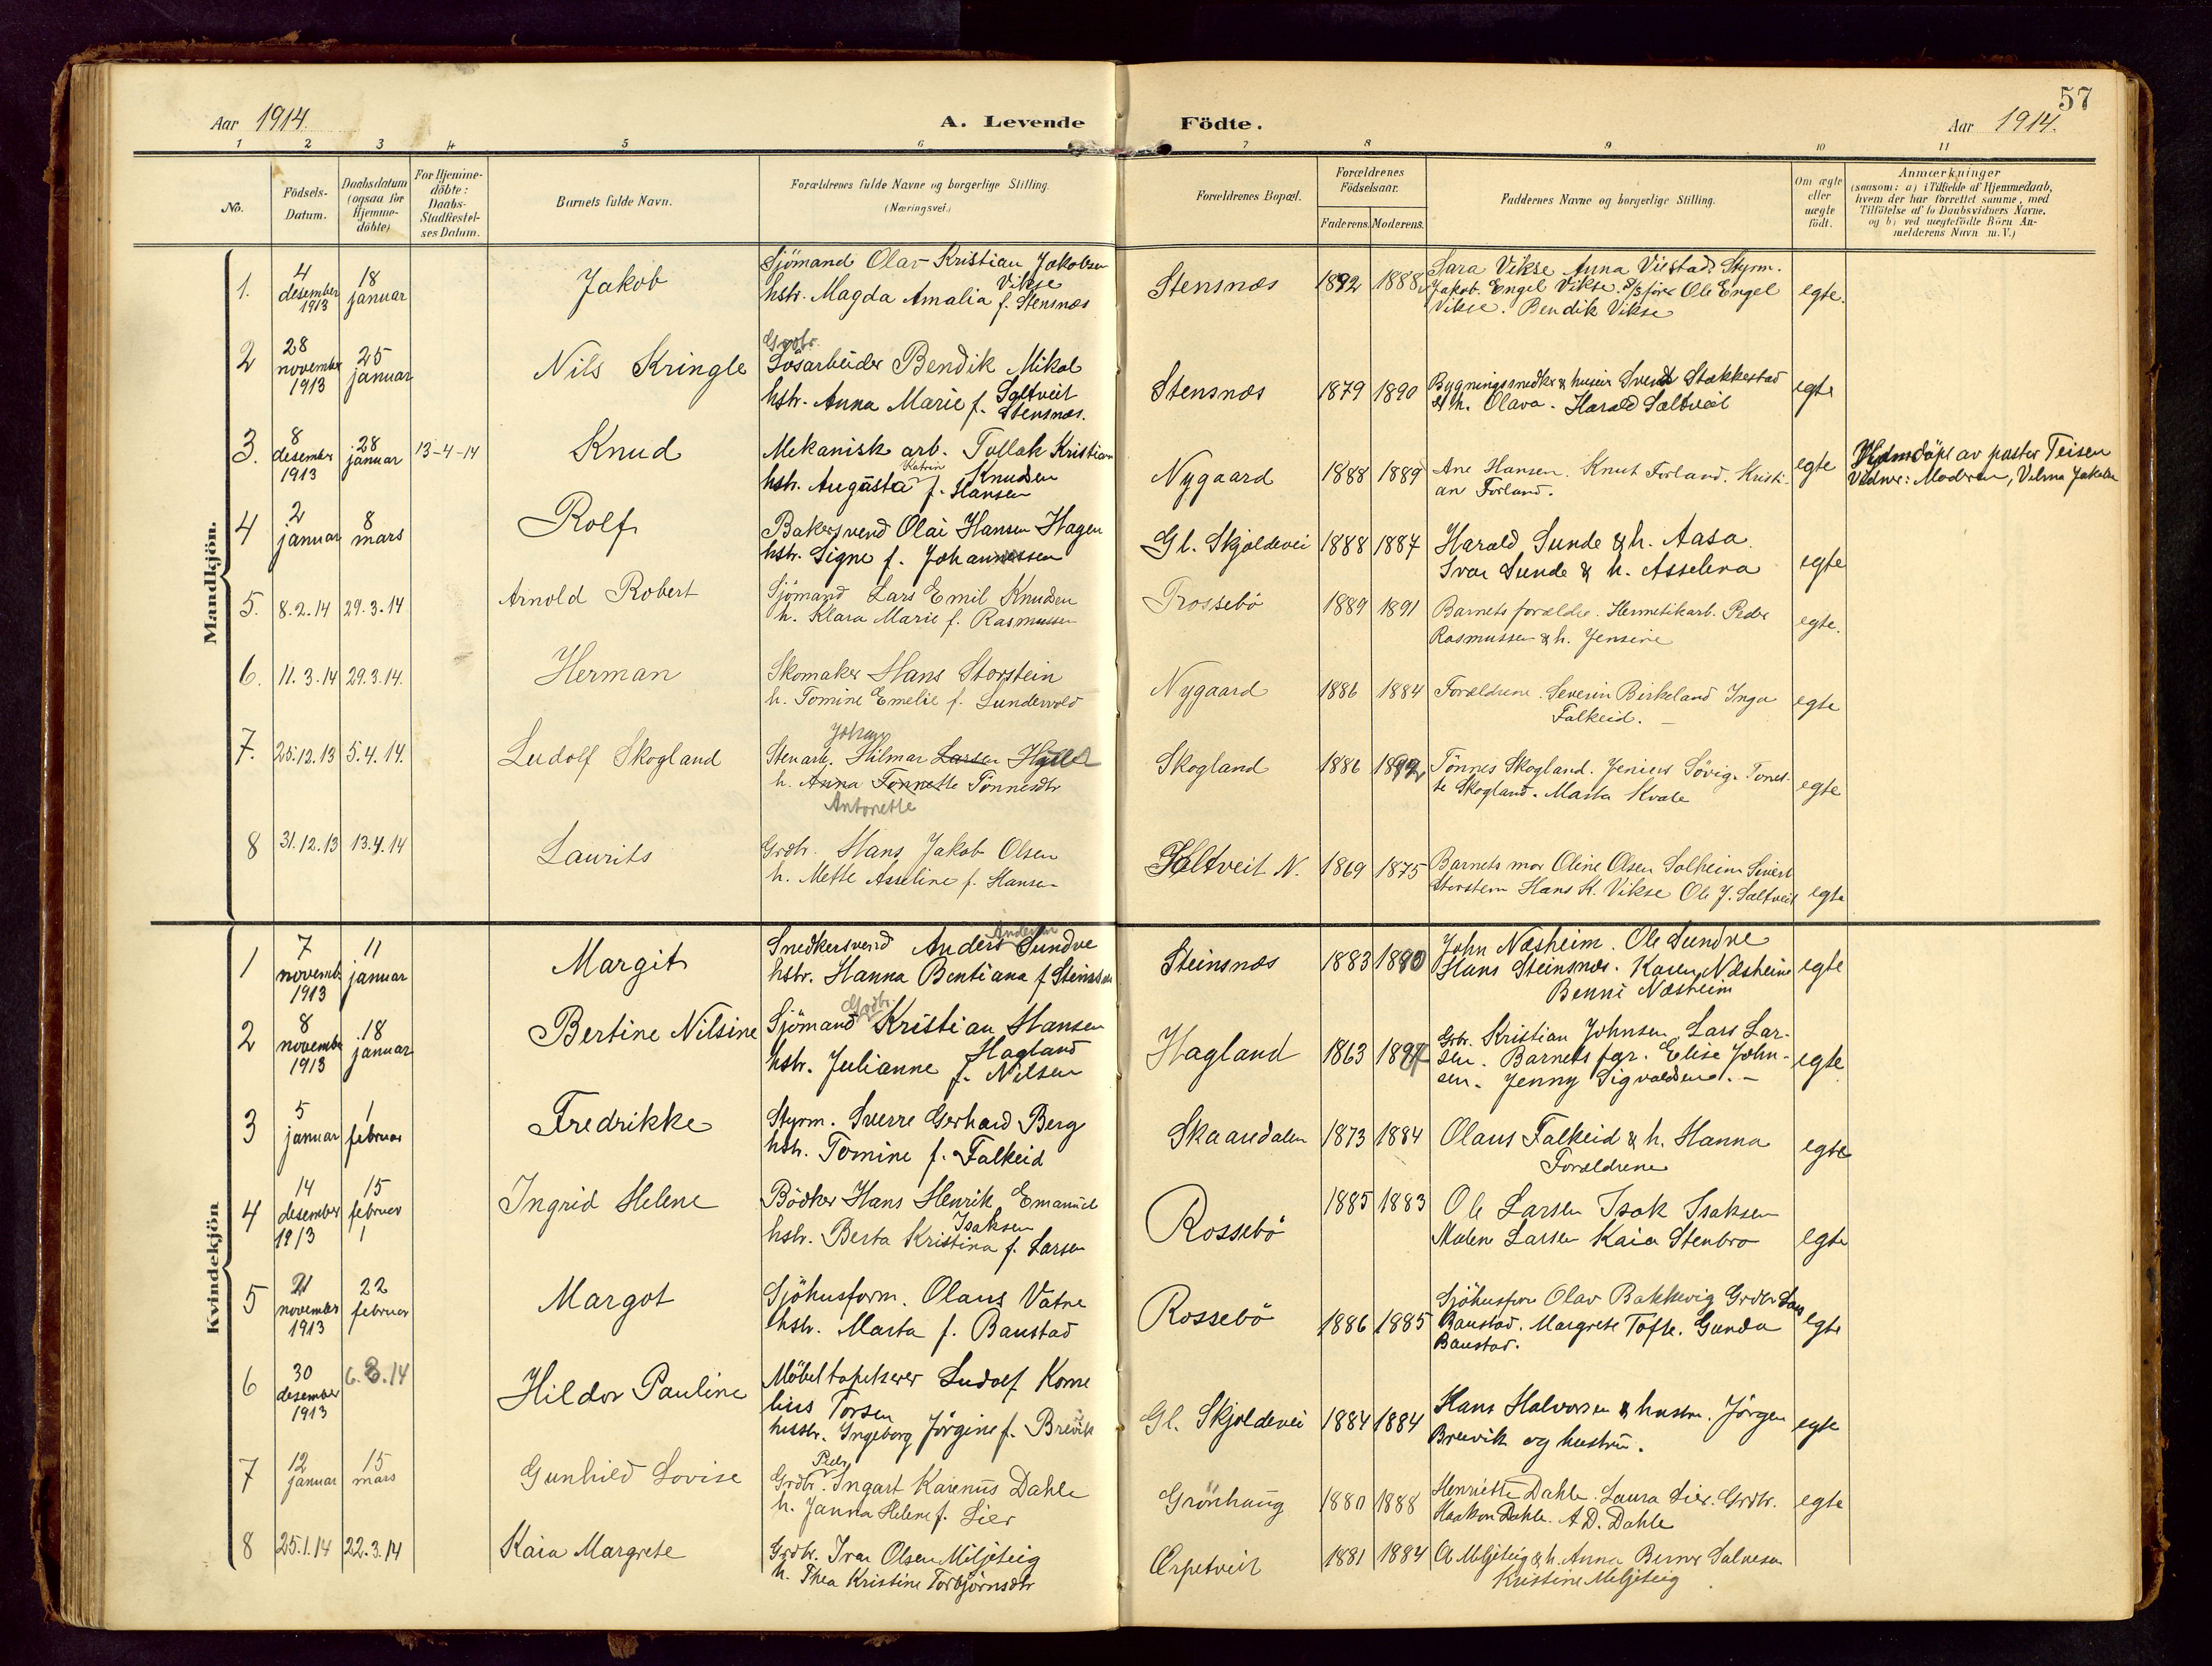 57
Aar 1914.
A. Levende Födte.
Aar 1914.
1 2 3 4 5 6 7 8 9 10 11
No.
Födsels-
Datum.
Daabsdatum
(ogsaa for
Hjemme-
döbte)
For Hjemme-
döbte:
Daabs-
Stadfæstel-
ses Datum.
Barnets fulde Navn.
Forældrenes fulde Navne og borgerlige Stilling.
(Næringsvei.)
Forældrenes Bopæl.
Forældrenes
Födselsaar.
Faderens. Moderens.
Faddernes Navne og borgerlige Stilling.
Om ægte
eller
uægte
födt.
Anmærkninger
(saasom: a) i Tilfælde af Hjemmedaab,
hvem der har forrettet samme, med
Tilföielse af to Daabsvidners Navne,
og b) ved uægtefödte Börn An-
melderens Navn m. V.)
Mandkjön.
1.
4
desember
1913
18
januar
Jakob
Sjömand Olav Kristian Jakobsen
Vikse
hstr. Magda Amalia f. Stensnæs
Stensnæs
1892 1888
Sara Vikse Anna Viestad. Styrm.
Jakob Engel Vikse. förer Ole Engel
Vikse. Bendik Vikse
egte.
2
28
november
1913
25
januar
Nils Kringle
Grdbr.
Lösarbeider Bendik Mikal
Saltveit
hstr. Anna Marie f. Stensnæs.
Stensnæs
1879 1890
Bygningssnedker & husein Svend Stakkestad
& h. Olava. Harald Saltveit
egte
3.
8
desember
1913
28
januar
13-4-14
Knud
Mekanisk arb. Tollak Kristian
Katrin Knudsen
hstr. Augusta f. Hansen
Nygaard
1888 1889
Ane Hansen. Knut Förland. Kristi-
an Förland.
egte
Hjemdöpt av pastor Teisen
Vidner: Moderen, Velma Jakobsen
4
2
januar
8
mars
Rolf
Bakersvend Olai Hansen Hagen
hstr. Signe f. Johannessen
Gl. Skjoldevei
1888 1887
Harald Sunde & h. Aasa.
Ivar Sunde & h. Asselena
egte
5.
8.2.14 29.3.14
Arnold Robert
Sjömand Lars Emil Knudsen
h. Klara Marie f. Rasmussen
Rossebö
1889 1891
Barnets forældre. Hermetikarb. Peder
Rasmussen & h. Jensine
egte.
6.
11.3.14 29.3.14.
Herman
Skomaker Hans Storstein
h. Tomine Emelie f. Sundervold
Nygaard
1886 1884
Forældrene. Severin Birkeland Inga
Falkeid. —
egte
7.
25.12.13 5.4.14.
Ludolf Skogland
Johan
Stenarb. Hilmar Larsen
h. Anna Tonnette Tönnesdtr
Antonette
Skogland
1886 1892
Tönnes Skogland. Jenius Sövig. Tonet-
te Skogland. Marta Kvale
egte
8
31.12.13 13.4.14
Laurits
Grdbr. Hans Jakob Olsen
h. Mette Asseline f. Hansen
Saltveit N.
1869 1875
Barnets mor Oline Olsen Solheim Sivert
Storstein Hans K. Vikse Ole J. Saltveit
egte
Kvindekjön
1
7
novemb.
1913
11
januar
Margit
Andersen
Snedkersvend Anders Sundve
hstr. Hanna Bentiana f. Steinsnæs
Steinsnæs
1883 1890
John Næsheim. Ole Sundve
Hans Steinsnæs. Karen Næsheim
Benni Næsheim
egte
2
8
novemb.
1913
18
januar
Bertine Nilsine
Grdbr.
Sjömand Kristian Hansen
Hagland
hstr. Julianne f. Nilsen
Hagland
1863 1887
Grbr. Kristian Johnsen, Lars Lar-
sen. Barnets far. Elise John-
sen. Jenny Sigvaldsen. —
egte
3
5
januar
1
februar
Fredrikke
Styrm. Sverre Gerhard Berg
hstr. Tomine f. Falkeid
Skaaredalen
1873 1884
Olaus Falkeid & h. Hanna
Forældrene
egte
4
14
desember
1913
15
februar
Ingrid Helene
Bödker Hans Henrik Emanuel
Isaksen
hstr. Berta Kristina f. Larsen
Rossebö
1885 1883
Ole Larsen Isak Isaksen
Malene Larsen Kaia Stenbro
egte
5
21
november
1913
22
februar
Margot
Sjöhusform. Olaus Vatne
hstr. Marta f. Baustad
Rossebö
1886 1885
Sjöhusform Olav Bakkevig Grdbr Lars
Baustad. Margrete Tofte. Gunda
Baustad.
egte
6
30
desember
1913
6.3.14
Hildor Pauline
Möbeltapetserer Ludolf Korne
lius Torsen
hustr. Ingeborg Jörgine f. Brevik
Gl. Skjoldevei
1884 1884
Hans Halvorsen & hustru. Jörgen
Brevik og hustru.
egte
7
12
januar
15
mars
Gunhild Lovise
Peder
Grdbr. Ingart Karenus Dahle
h. Janna Helene f. Lier
Grönhaug
1880 1888
Henriette Dahle. Laura Lier. Grdbr.
Haakon Dahle. A. D. Dahle
egte
8
25.1.14 22.3.14
Kaia Margrete
Grdbr. Ivar Olsen Miljeteig
h. Thea Kristine Torbjörnsdtr
Erpetveit
1881 1884
O. Miljeteig & h. Anna Berner Salvesen
Kristine Miljeteig